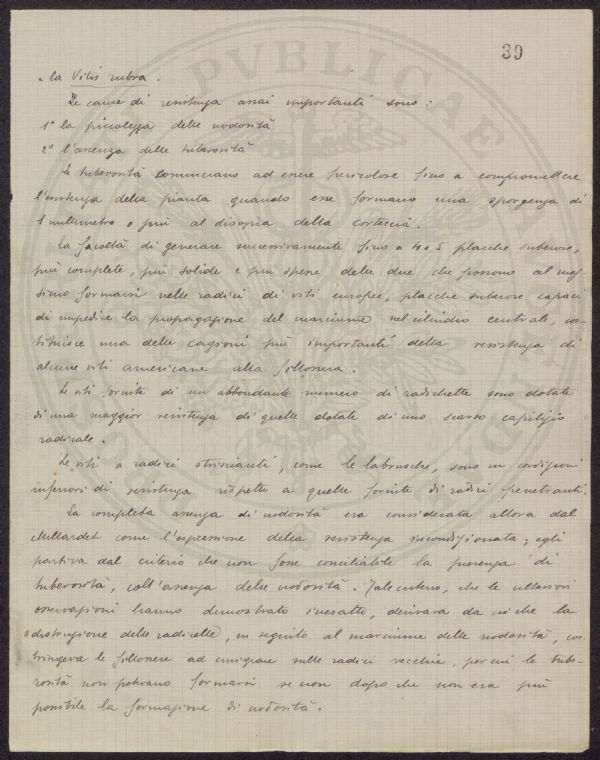 39
e la Vitis rubra.
Le cause di resistenza assai importanti sono:
1° la piccolezza delle nodosità
2° l'assenza delle tuberosità
Le tuberosità cominciano ad essere pericolose fino a compromettere
l'esistenza della pianta quando esse formano una sporgenza di
1 millimetro o più al disopra della corteccia.
La facoltà di generare successivamente fino a 4 o 5 placche suberose,
più complete, più solide e più spesse delle due che possono al mas-
simo formarsi nelle radici di viti europee, placche suberose capaci
di impedire la propagazione del marciume nel cilindro centrale, cos-
tituisce una delle cagioni più importanti della resistenza di
alcune viti americane alla fillossera.
Le viti fornite di un abbondante numero di radichette sono dotate
di una maggior resistenza di quelle dotate di uno scarso capillizio
radicale.
Le viti a radici striscianti, come le labrusche, sono in condizioni
inferiori di resistenza rispetto a quelle fornite di radici penetranti.
La completa assenza di nodosità era considerata allora dal
Millardet come l'espressione della resistenza incondizionata; egli
partiva dal criterio che non fosse conciliabile la presenza di
tuberosità, coll'assenza delle nodosità. Tale criterio, che le ulteriori
osservazioni hanno dimostrato inesatto, derivava da ciò che la
distruzione delle radicelle, in seguito al marciume delle nodosità, cos-
tringeva le fillossere ad emigrare sulle radici vecchie, per cui le tube-
rosità non potevano formarsi se non dopo che non era più
possibile la formazione di nodosità.
PVBLICAE